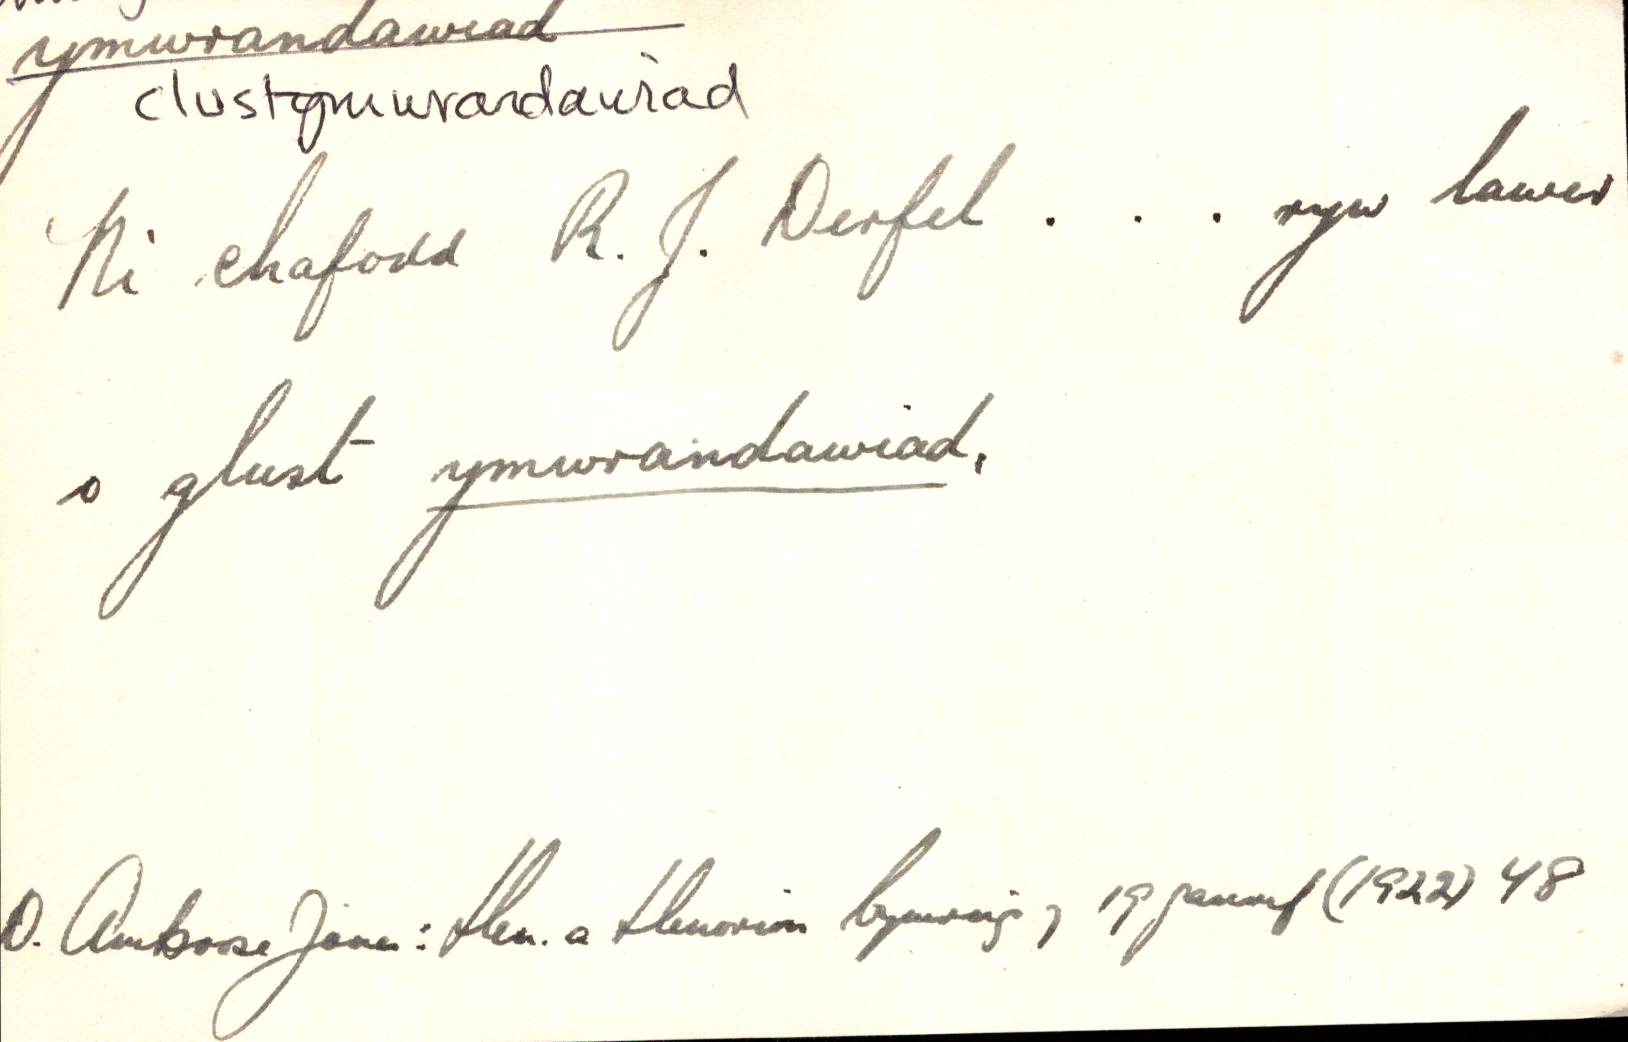 ymwrandawiad
clustymwrandawiad
Ni chafodd R. J. Derfel . . . ryw lawer
o glust ymwrandawiad.
D. Ambrose Jones: Llen. a Llenorion Cymreig y 19 ganrif (1922) 48